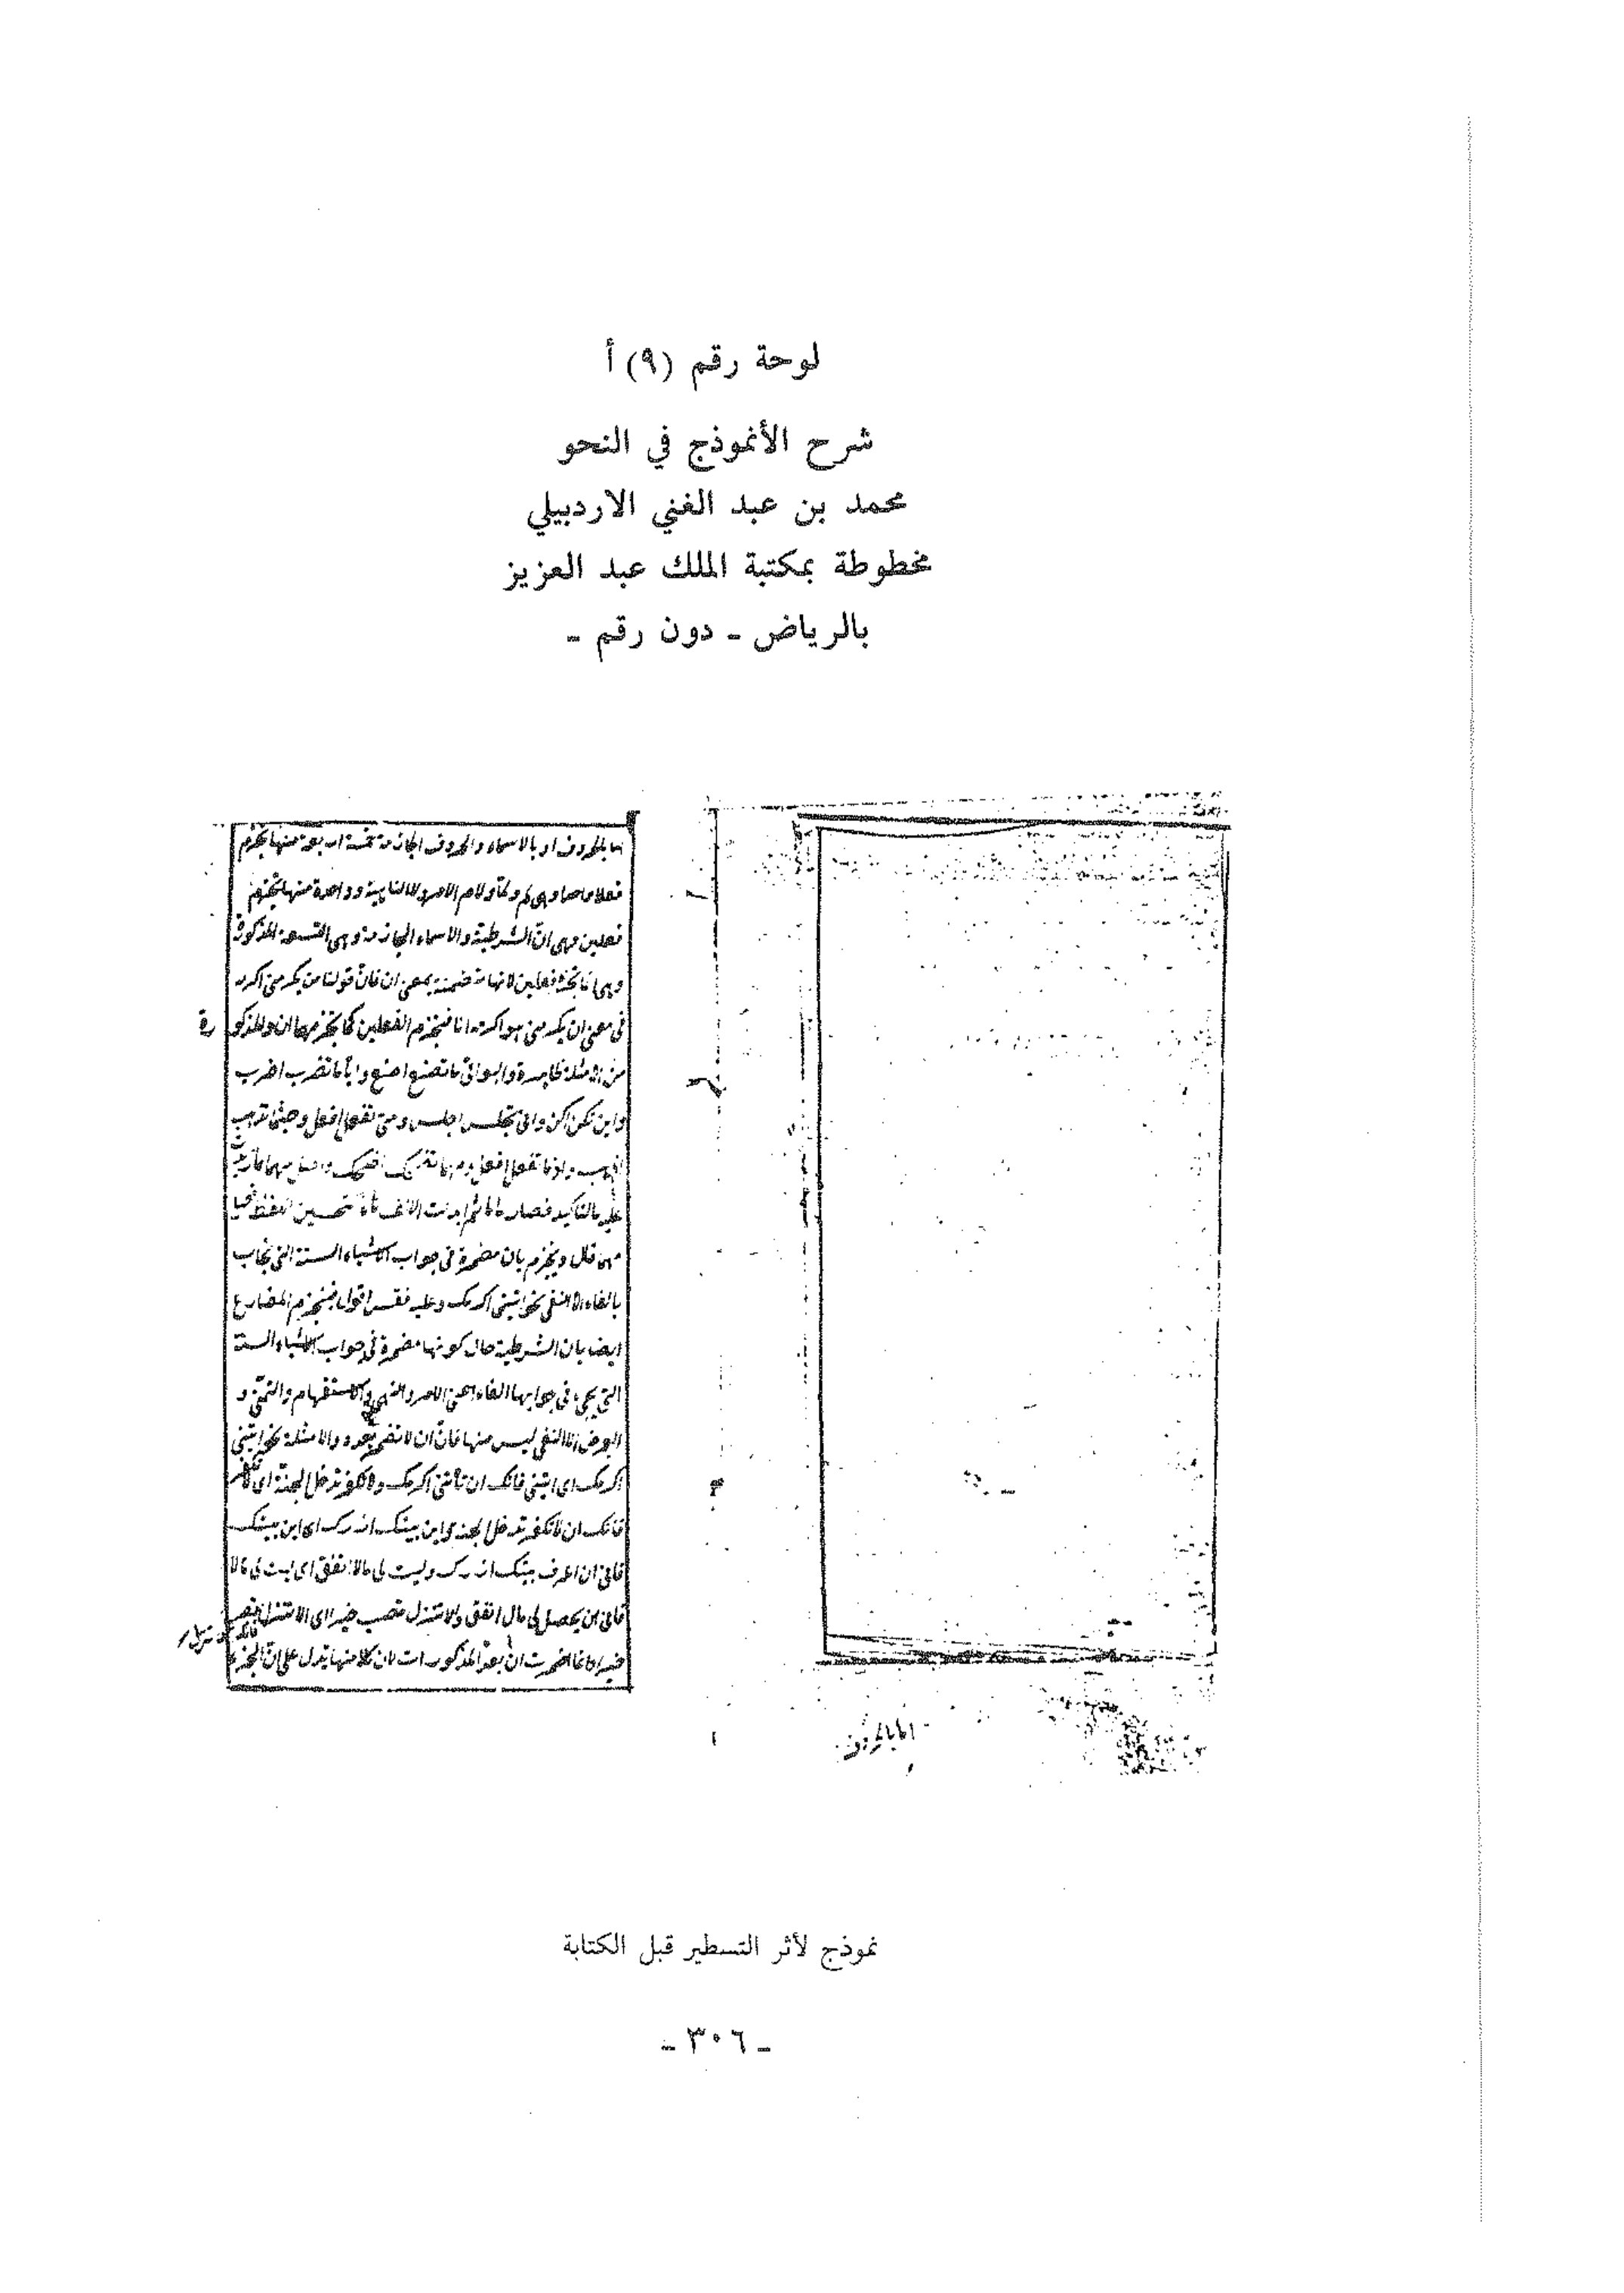 لوحة رقم (٩) أ
شرح الأنموذج في النحو
محمد بن عبد الغني الاردبيلي
مخطوطة بمكتبة الملك عبد العزيز
بالرياض - دون رقم -
اما بالحروف او بالاسماء والحروف الجازمة خمسة اربعة منها يجزم
فعلا واحدا وهي لم ولما ولام الامر ولا الناهية وواحدة منها تجزم
فعلين وهي ان الشرطية والاسماء الجازمة وهي التسعة المذكورة
وهي انما تجزم فعلين لانها متضمنة بمعنى ان فان قولنا من يكرمني اكرمه
في معنى ان يكرمني هو اكرمه انا فينجزم الفعلين كما يجزمهما ان والمذكورة
من الامثلة ظاهرة والبواقي ما تصنع اصنع وايا ما تضرب اضرب
واين تكن اكن واني تجلس اجلس ومتى تفعل افعل وحيثما تذهب
اذهب واذما تفعل افعل
عليه ما للتاكيد فصار ماما ثم ابدلت الالف هاء تحسين اللفظ
مهما قال ويجزم بان مضمرة في جواب الاشياء الستة التي تجاب
بالفاء الا النفي نحو ايتني اكرمك وعليه فقس اقول فينجزم المضارع
ايضا بان الشرطية حال كونها مضمرة في جواب الاشياء الستة
التي يجيء في جوابها الفاء اعني الامر والنهي والاستفهام والتمني و
العرض الا النفي ليس منها فان ان لا تضمر بعده والامثلة نحو ايتني
اكرمك اي ايتني فانك ان تأتني اكرمك ولا تكفر تدخل الجنة اي لا تكفر
فانك ان لا تكفر تدخل الجنة واين بيتك ازرك اي اين بيتك
فاني ان اعرف بيتك ازرك وليت لي مالا انفق اي ليت لي مالا
فاني ان يحصل لي مال انفق والا تنزل تصب خيرا اي الا تنزل تصب
خيرا وانما اضمرت ان بعد المذكورات لان كلا منها تدل على ان الجزء
اما بالحروف
نموذج لأثر التسطير قبل الكتابة
- ٣٠٦ -